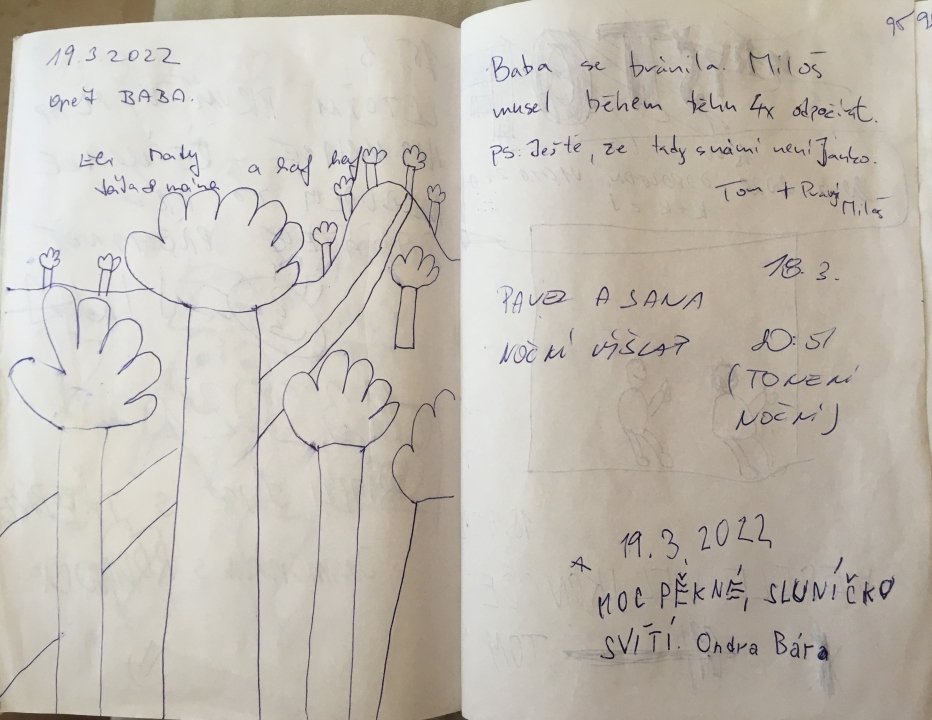 19.3.2022
opět BABA.
a haf haf
Baba se bránila. Miloš
musel během běhu 4x odpočívat.
PS: Ještě, že tady s námi není Janko.
Tom + Pravý Miloš
18.3.
PAVEL A JANA
NOČNÍ VÝŠLAP 20:51
(TO NENÍ
NOČNÍ)
19.3.2022
MOC PĚKNÉ, SLUNÍČKO
SVÍTÍ. Ondra Bára